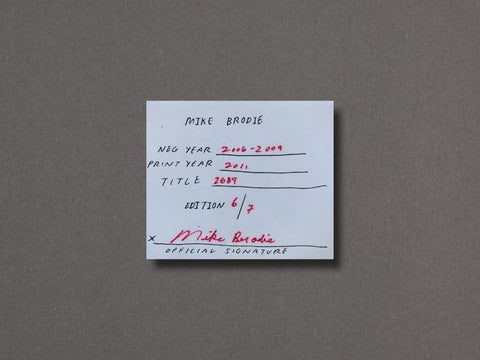 MIKE BRODIE
NEG YEAR 2006-2009
PRINT YEAR 2011
TITLE 2689
EDITION 6/7
x Mike Brodie
OFFICIAL SIGNATURE